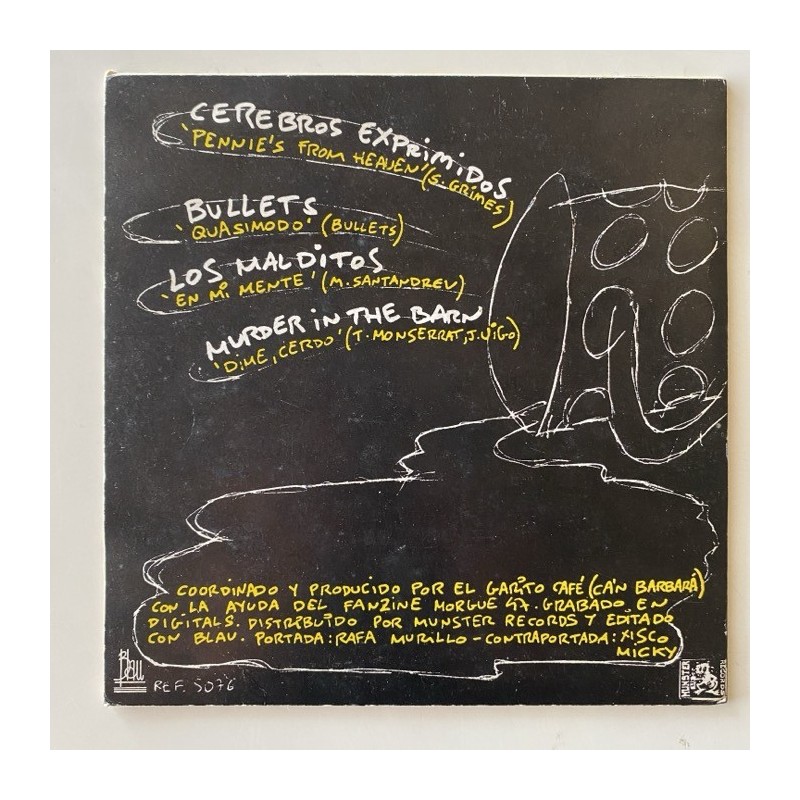 CEREBROS EXPRIMIDOS
'PENNIE'S FROM HEAVEN' (G. GRIMES)
BULLETS
'QUASIMODO' (BULLETS)
LOS MALDITOS
'EN MI MENTE' (M. SANTANDREU)
MURDER IN THE BARN
'DIME, CERDO' (T. MONSERRAT, J. VIGO)
COORDINADO Y PRODUCIDO POR EL GARITO CAFÉ (CA'N BARBARÁ)
CON LA AYUDA DEL FANZINE MORGUE 47. GRABADO EN
DIGITALS. DISTRIBUIDO POR MUNSTER RECORDS Y EDITADO
CON BLAU. PORTADA: RAFA MURILLO - CONTRAPORTADA: XISCO
MICKY
Blau
REF. 5076
MUNSTER
RECORDS